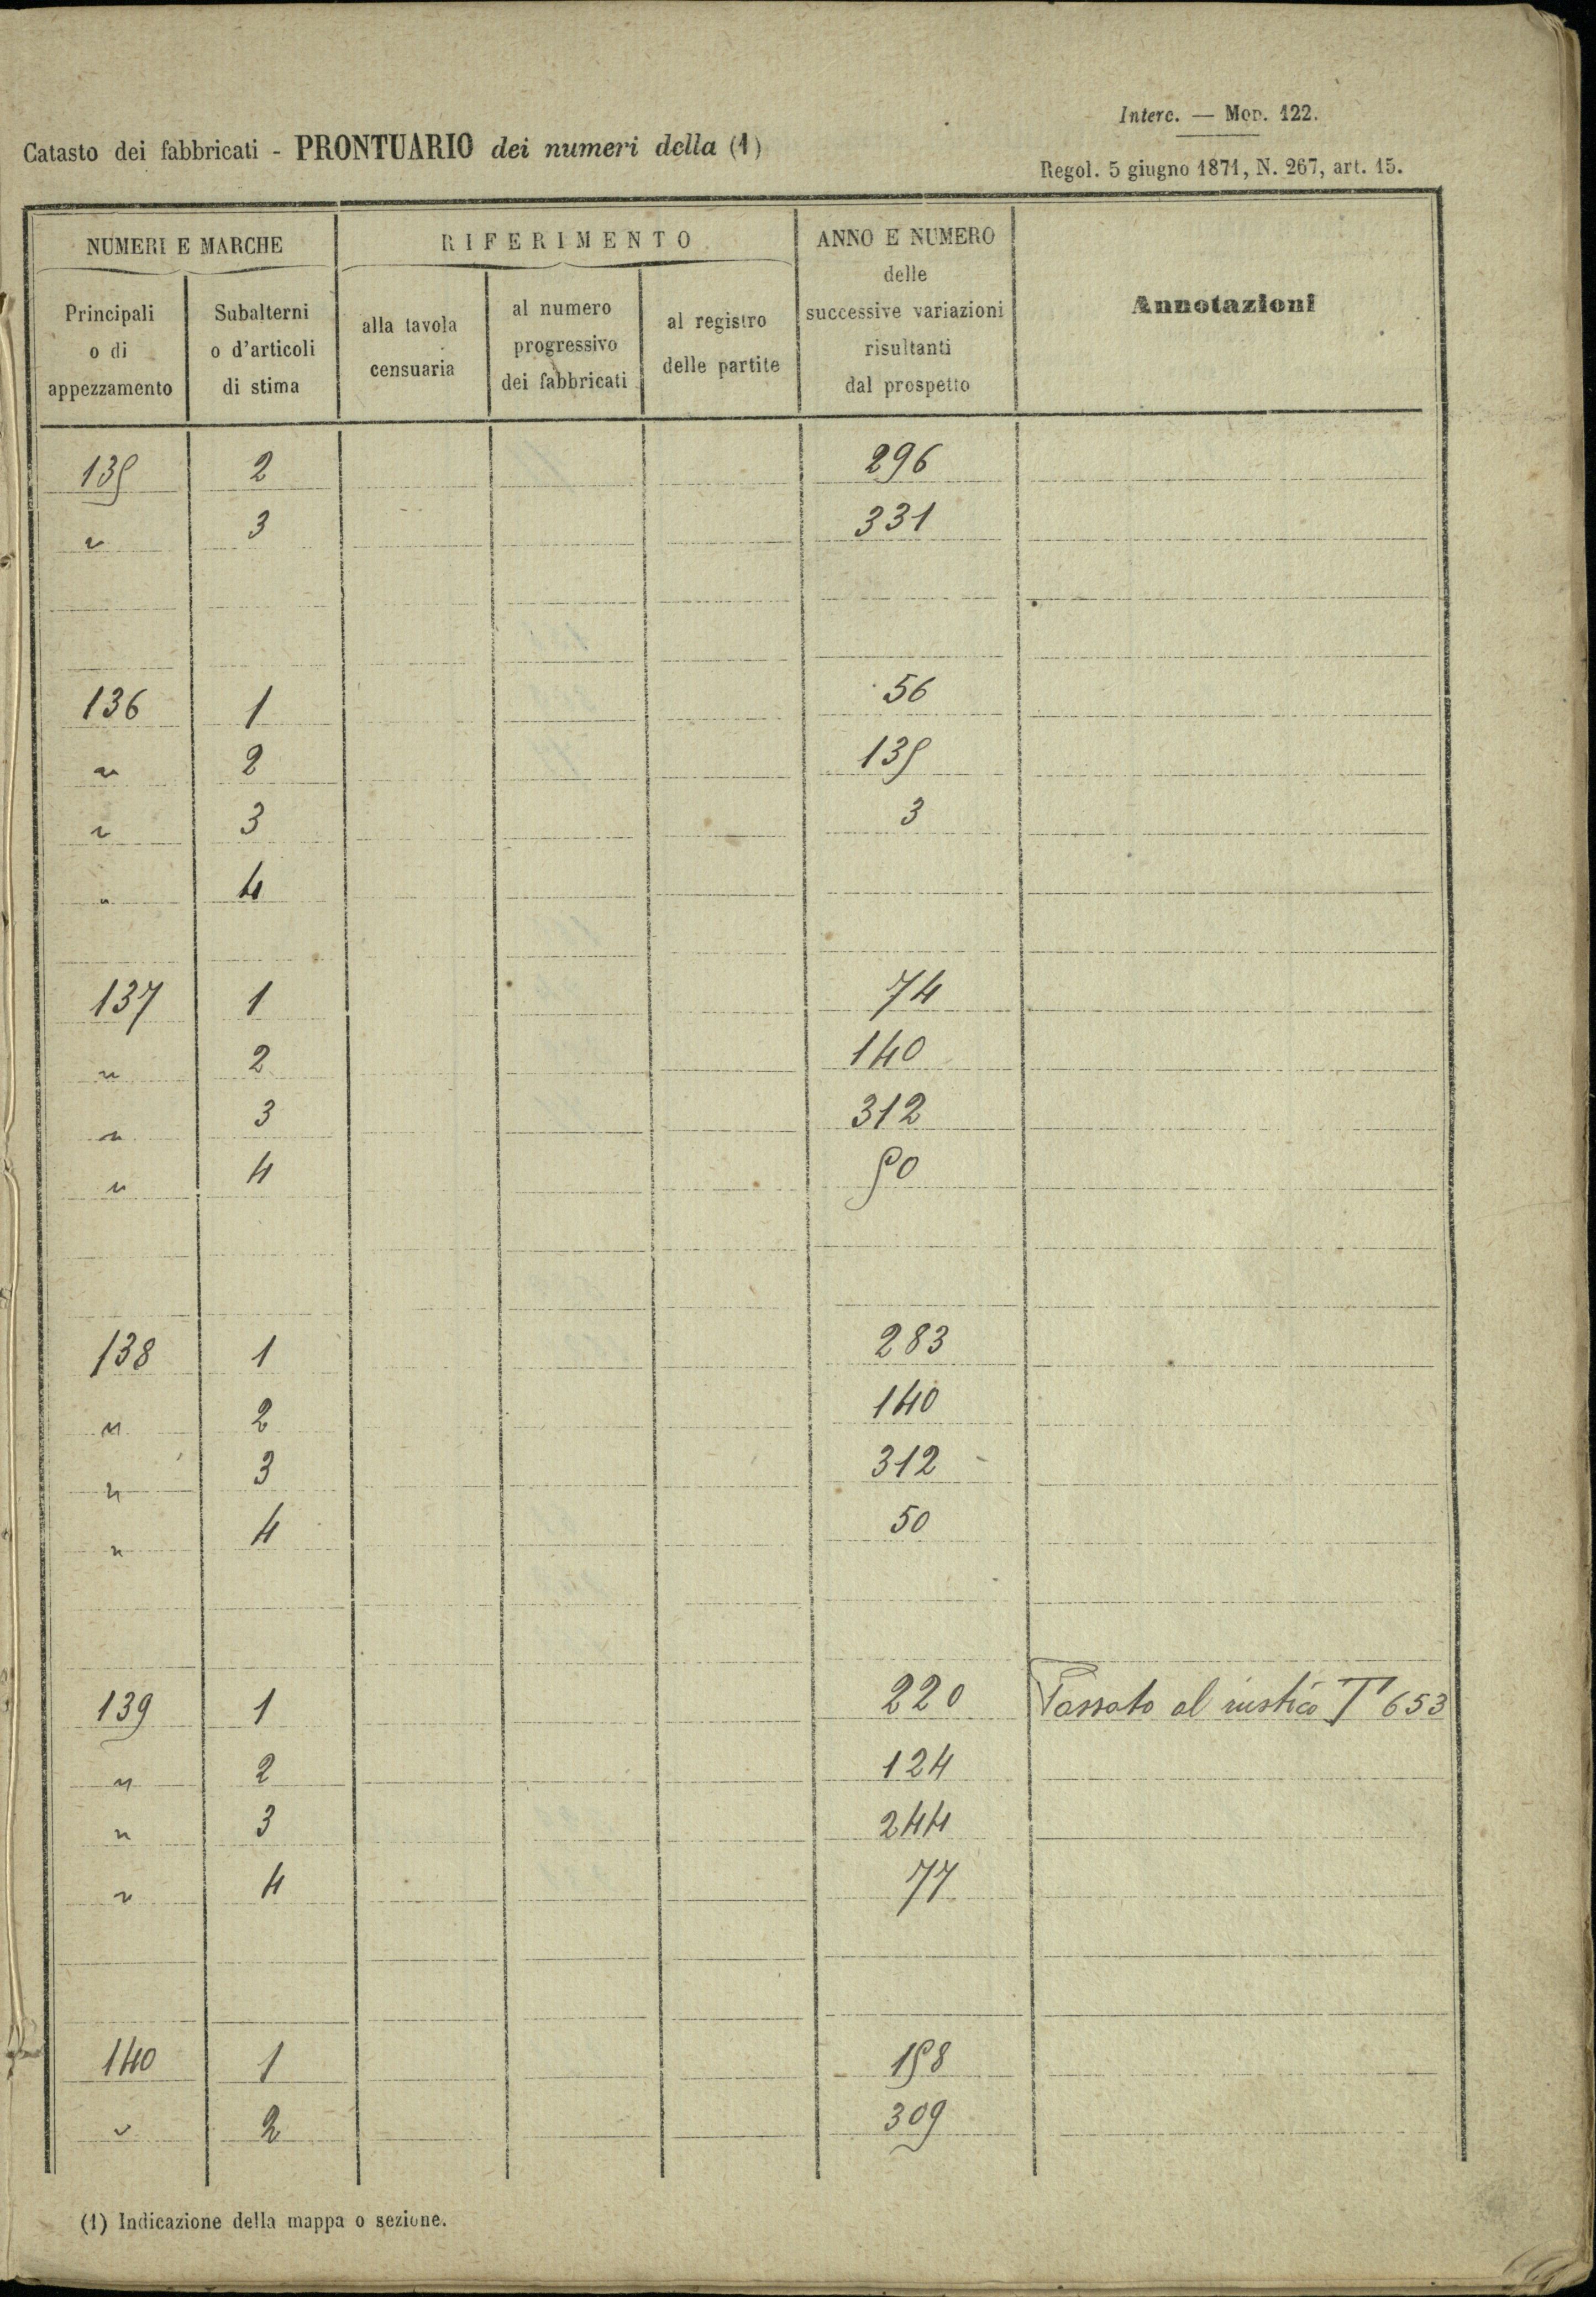 Interc. — Mod. 122.
Catasto dei fabbricati - PRONTUARIO dei numeri della (1)
Regol. 5 giugno 1871, N. 267, art. 15.
NUMERI E MARCHE
RIFERIMENTO
ANNO E NUMERO
delle
successive variazioni
risultanti
dal prospetto
Annotazioni
Principali
o di
appezzamento
Subalterni
o d'articoli
di stima
alla tavola
censuaria
al numero
progressivo
dei fabbricati
al registro
delle partite
135 2 296
" 3 331
136 1 56
" 2 135
" 3 3
" 4
137 1 74
" 2 140
" 3 312
" 4 50
138 1 283
" 2 140
" 3 312
" 4 50
139 1 220 Passato al rustico T 653
" 2 124
" 3 244
" 4 77
140 1 158
" 2 309
(1) Indicazione della mappa o sezione.